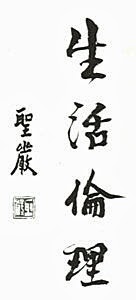 生活倫理
聖嚴